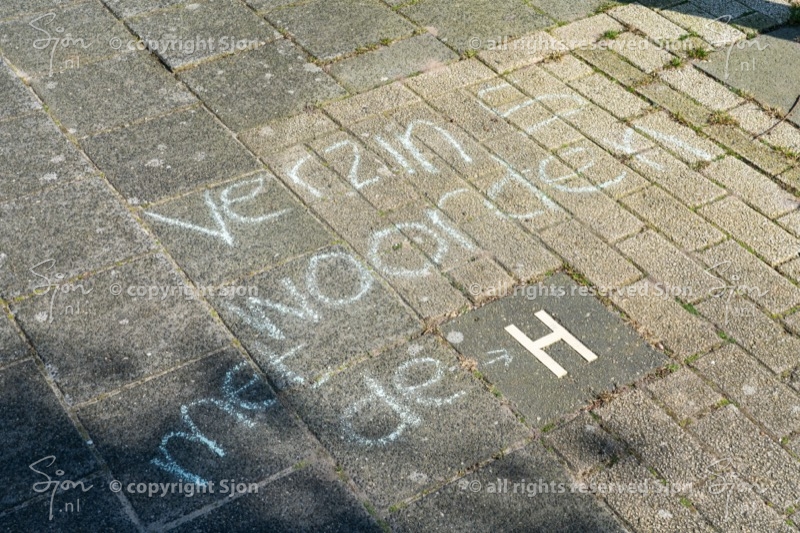 verzin 3
woorden
met de → H
Sjon.nl © copyright Sjon © all rights reserved Sjon.nl
Sjon.nl © copyright Sjon © all rights reserved Sjon.nl
Sjon.nl © copyright Sjon © all rights reserved Sjon.nl